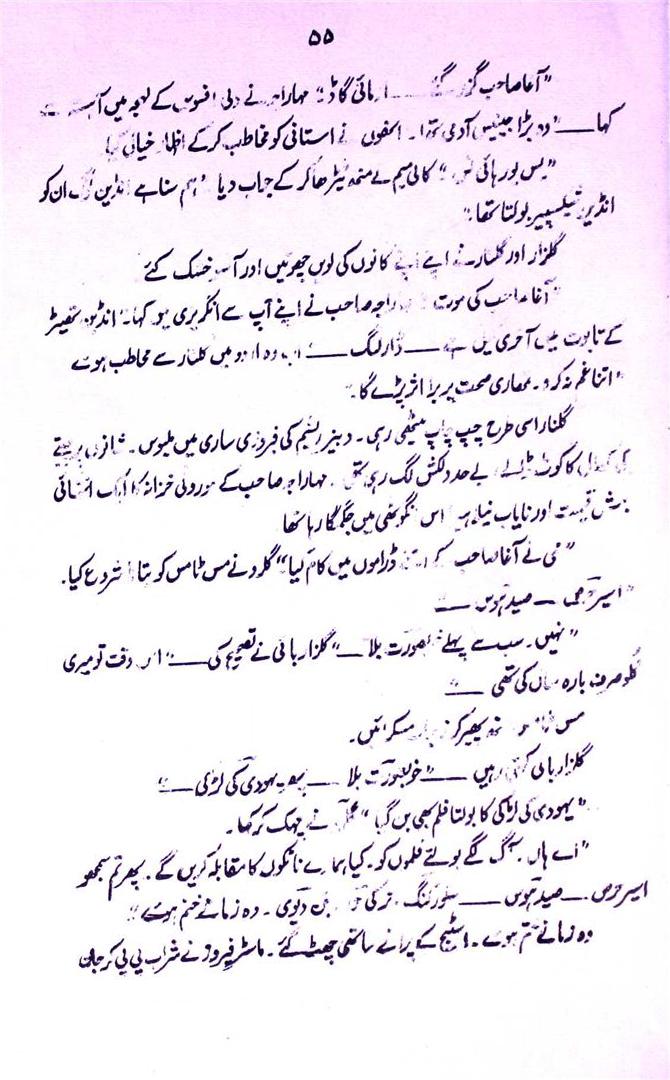 ۵۵
"آغا صاحب گزر گئے ـــــ مائی گاڈ" مہاراجہ نے دلی افسوس کے لہجہ میں
کہا ـــــ "وہ بڑا جینیس آدمی تھا۔ انھوں نے استانی کو مخاطب کر کے اظہار خیال کیا
"یس یور ہائی نس" کالی میم نے منھ ٹیڑھا کر کے جواب دیا "ہم سنا ہے انڈین لوگ ان کو
انڈین شیکسپیر بولتا تھا"
گلزار اور گلنار نے اپنے اپنے کانوں کی لویں چھوئیں اور آنسو خشک کئے
"آغا صاحب کی موت" راجہ صاحب نے اپنے آپ سے انگریزی میں کہا۔ "انڈین تھیٹر
کے تابوت میں آخری کیل ہے ـــــ ڈارلنگ ـــــ" اب وہ اردو میں گلنار سے مخاطب ہوئے
"اتنا غم نہ کرو۔ تمھاری صحت پر برا اثر پڑے گا۔"
گلنار اسی طرح چپ چاپ بیٹھی رہی۔ دبیز ریشم کی فیروزی ساری میں ملبوس۔ شانوں پر
کی کھال کا کوٹ ڈالے بے حد دلکش لگ رہی تھی۔ مہاراجہ صاحب کے موروثی خزانہ کا ایک انتہائی
بیش قیمت اور نایاب نیلم اس انگوٹھی میں جگمگا رہا تھا
"می نے آغا صاحب کے ڈراموں میں کام کیا" گلرو نے مس ٹامس کو بتانا شروع کیا۔
"اسیر حرص ـــــ صید ہوس ـــــ"
"نہیں۔ سب سے پہلے خوبصورت بلا ـــــ" گلزار بائی نے تصحیح کی ـــــ "اس وقت تو میری
گلو صرف بارہ سال کی تھی ـــــ"
مس منھ پھیر کر مسکرائیں۔
گلزار بائی کہتی رہیں ـــــ "خوبصورت بلا ـــــ پھر یہودی کی لڑکی ـــــ"
"یہودی کی لڑکی کا بولتا فلم بھی بن گیا" نے چہک کر کہا۔
"اے ہاں۔ آگ لگے بولتے فلموں کو۔ کیا ہمارے ناٹکوں کا مقابلہ کریں گے۔ پھر تم سمجھو
اسیر حرص ـــــ صید ہوس ـــــ سلور کنگ۔ ترکی حور۔ بن دیوی۔ وہ زمانے ختم ہوئے"
وہ زمانے ختم ہوئے۔ اسٹیج کے پرانے ساتھی چھٹ گئے۔ ماسٹر فیروز نے شراب پی پی کر جان